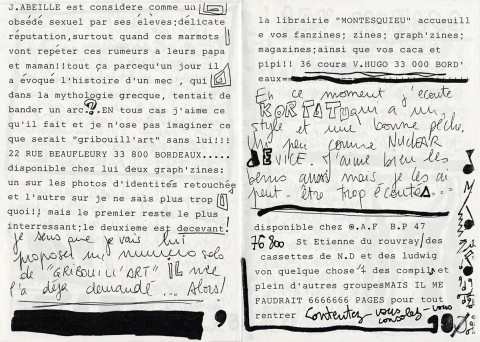 J.ABEILLE est considere comme un
obsédé sexuel par ses élèves;délicate
réputation,surtout quand ces marmots
vont repéter ces rumeurs a leurs papa
et maman!!tout ça parcequ'un jour il
a évoqué l'histoire d'un mec , qui
dans la mythologie grecque, tentait de
bander un arc?.EN tous cas j'aime ce
qu'il fait et je n'ose pas imaginer ce
que serait "gribouill'art" sans lui!!!
22 RUE BEAUFLEURY 33 800 BORDEAUX.....
disponible chez lui deux graph'zines:
un sur les photos d'identités retouchée
et l'autre sur je ne sais plus trop
quoi!; mais le premier reste le plus
interressant;le deuxieme est decevant!
je sens que je vais lui
proposer un numero solo
de "GRIBOUILL'ART" IL me
l'a déja demandé ... Alors!
la librairie "MONTESQUIEU" accueuill
e vos fanzines; zines; graph'zines;
magazines;ainsi que vos caca et
pipi!! 36 cours V.HUGO 33 000 BORD'
eaux
En ce moment j'écoute
KORTATU qui a un
style et une bonne pêche.
Un peu comme NUCLEAR
DEVICE. J'aime bien les
berus aussi mais je les ai
peut-être trop écouté...
disponible chez O.A.F B.P 47
76 800 St Etienne du rouvray/des
cassettes de N.D et des ludwig
von quelque chose + des compils et
plein d'autres groupesMAIS IL ME
FAUDRAIT 6666666 PAGES pour tout
rentrer Contentez-vous consolez-vous